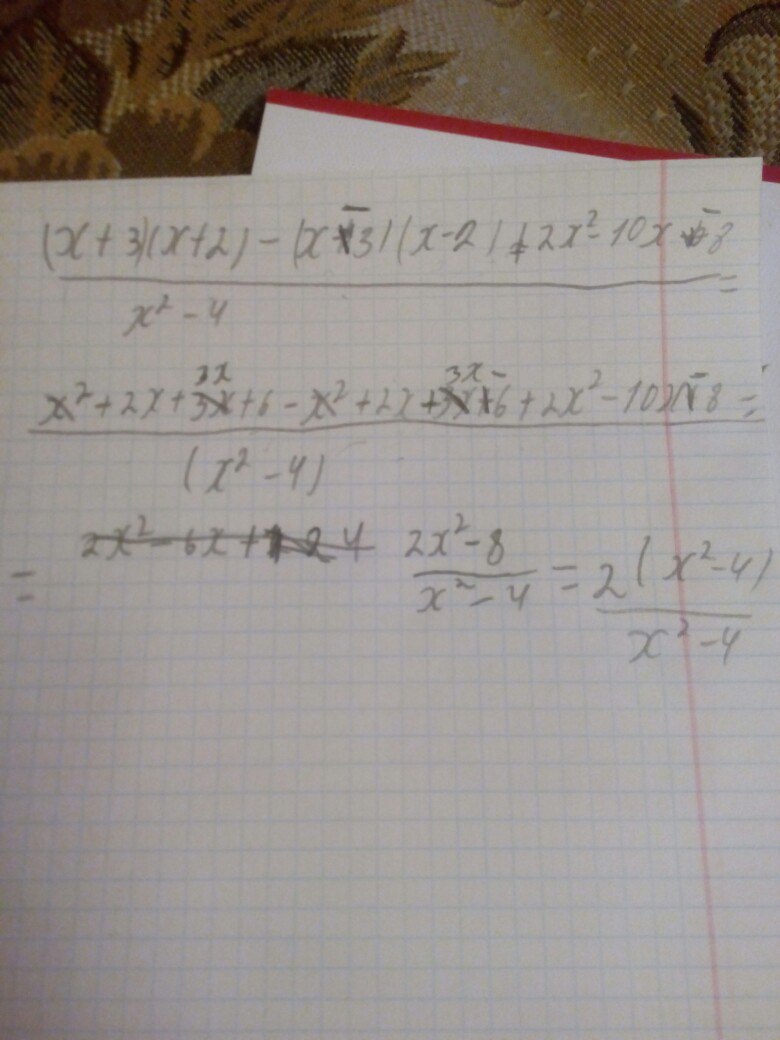 (x+3)(x+2) - (x-3)(x-2) + 2x² - 10x - 8
x² - 4 =
x² + 2x + 3x + 6 - x² + 2x + 3x - 6 + 2x² - 10x - 8 =
(x² - 4)
= 2x² - 6x + 4 2x² - 8 / x² - 4 = 2(x² - 4) / x² - 4